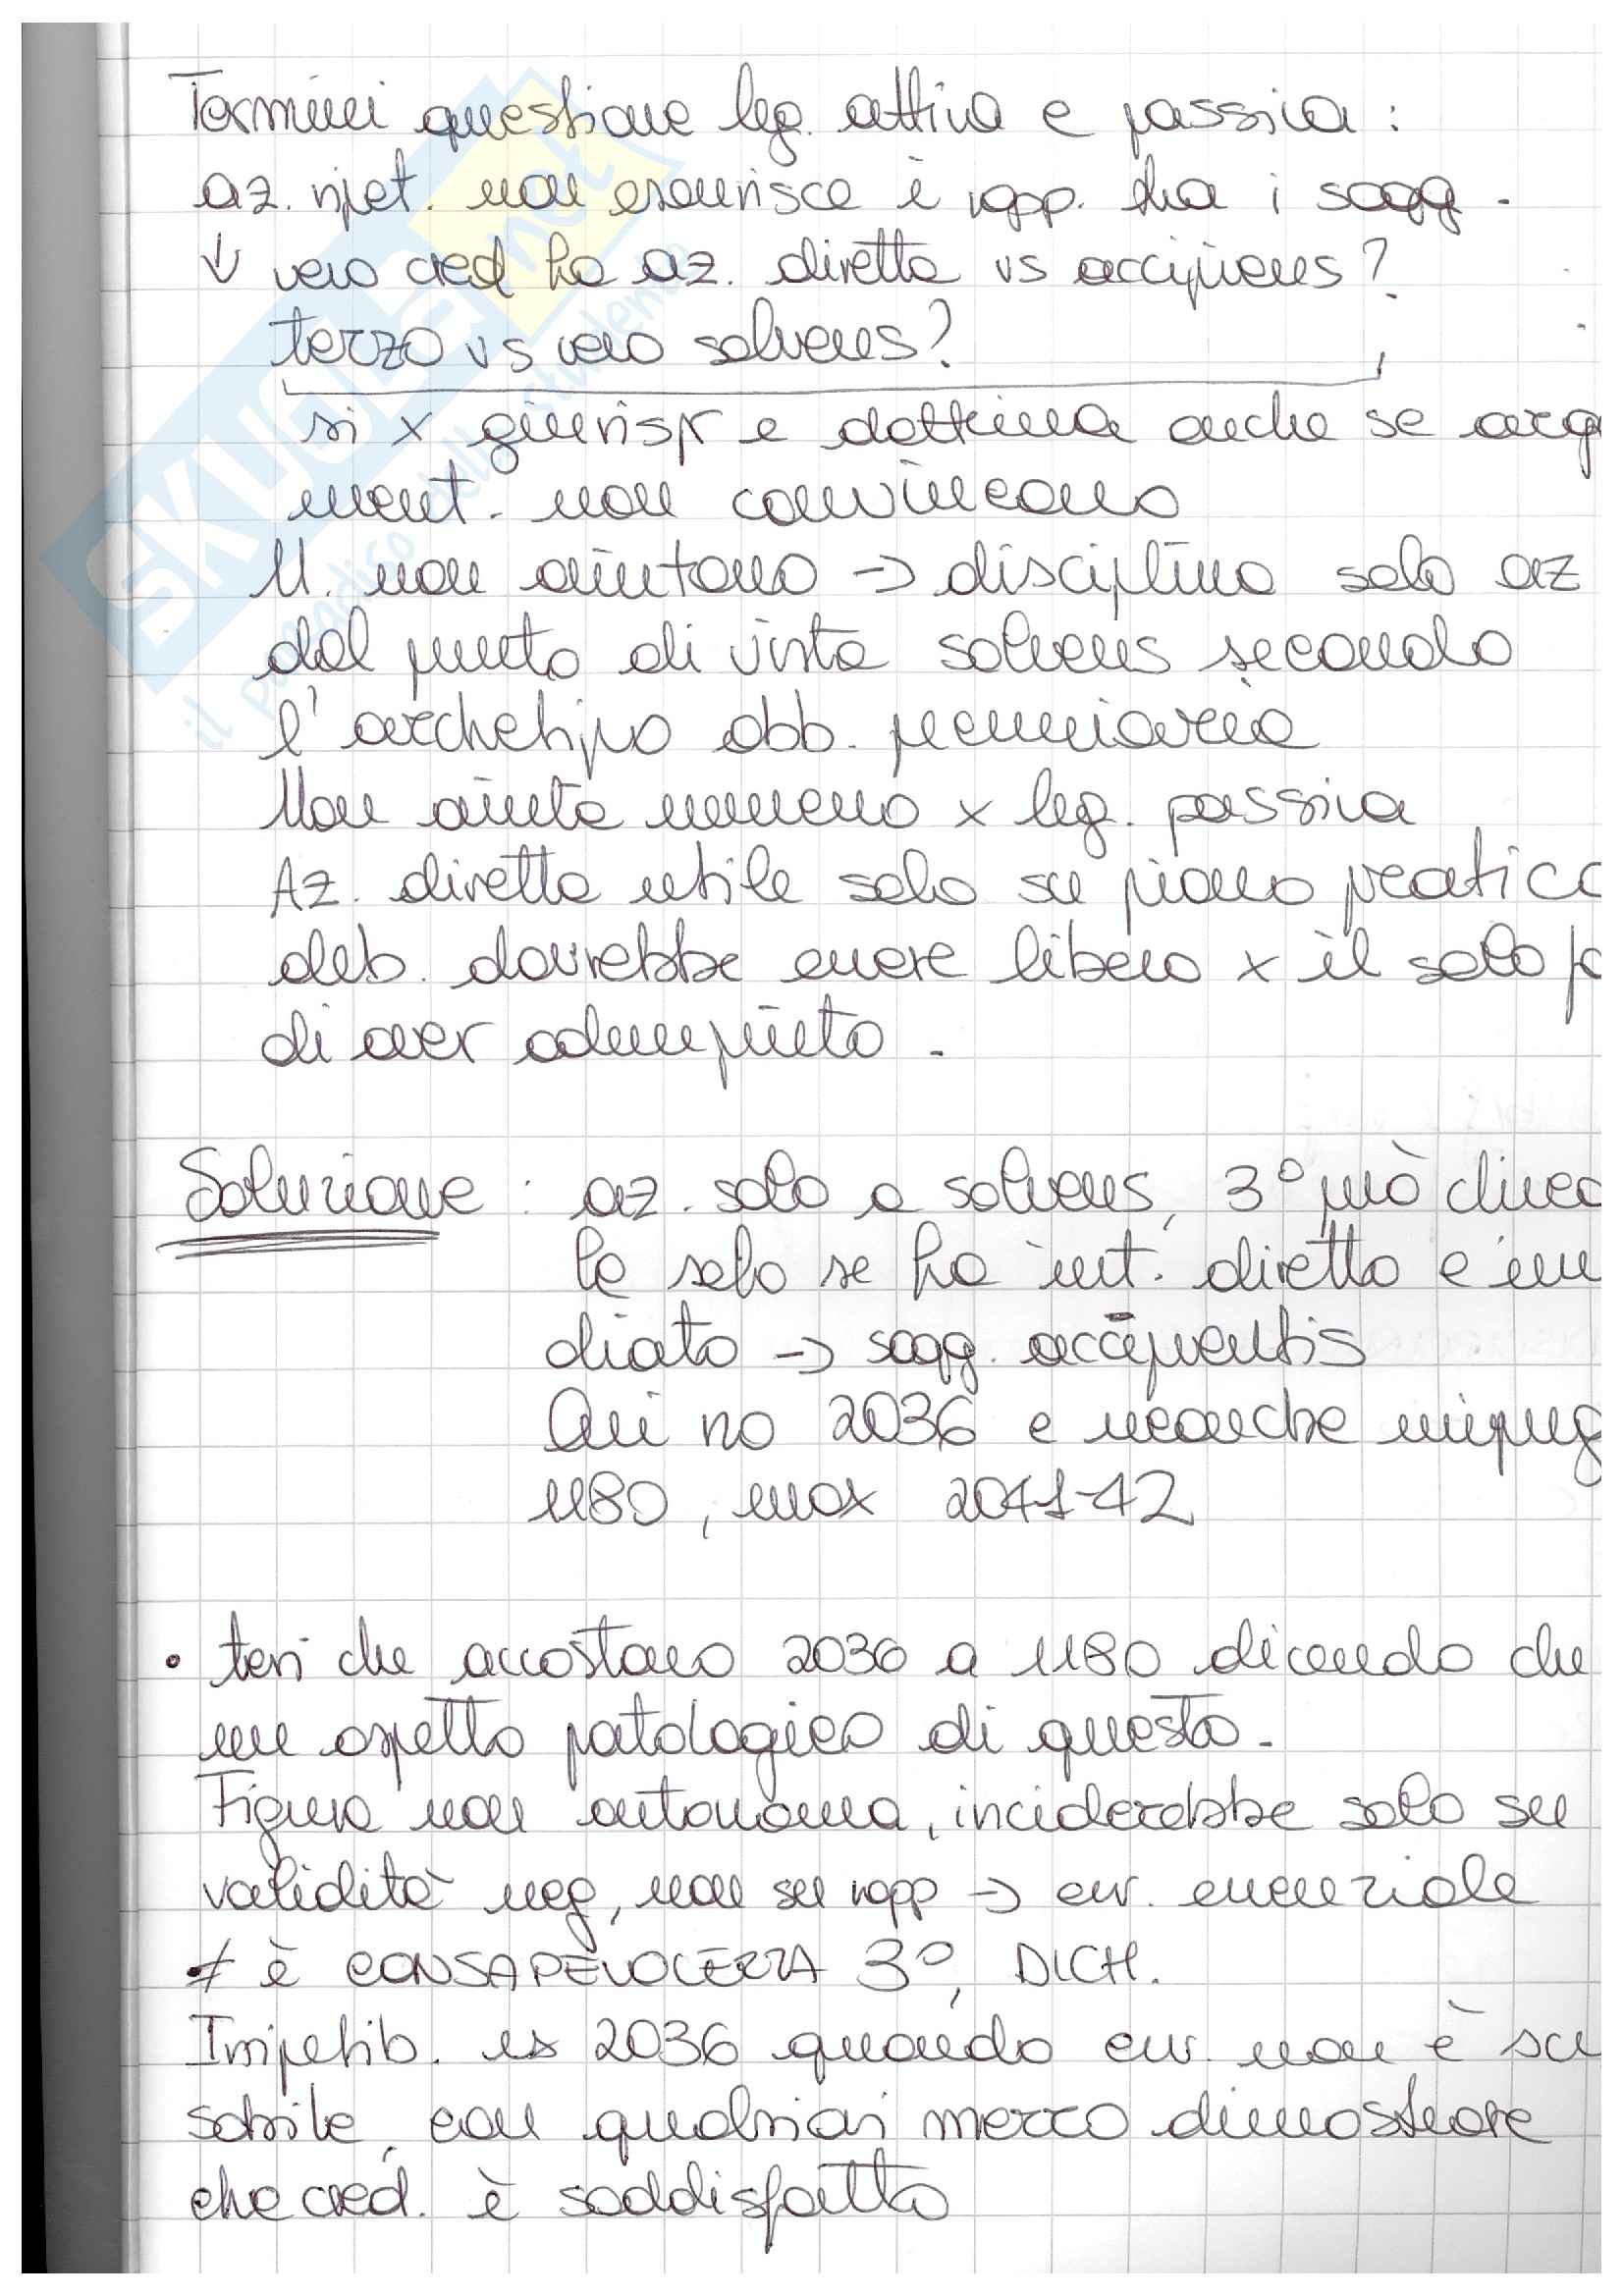 Termini questione leg. attiva e passiva :
az. ripet. non esaurisce i rapp. tra i sogg.
↓ vero cred ha az. diretta vs accipiens?
terzo vs vero solvens?
si x giurispr e dottrina anche se argo
ment. non convincono
ll. non aiutano -> disciplina solo az
dal punto di vista solvens secondo
l'archetipo obb. pecuniaria
Non aiuta nemmeno x leg. passiva
Az. diretta utile solo su piano pratico
deb. dovrebbe essere libero x il solo fa
di aver adempiuto.
Soluzione : az. solo a solvens, 3° può
solo se ha int. diretto e imm
diato -> sogg. accipientis
Qui no 2036 e neanche
1180, max 2041-42
• tesi che accostano 2036 a 1180 dicendo che
un aspetto patologico di questo.
Figura non autonoma, inciderebbe solo su
validità neg, non su rapp -> err. essenziale
≠ è CONSAPEVOLEZZA 3°, DICH.
Irripetib. ex 2036 quando err. non è scu
sabile, con qualsiasi mezzo dimostrare
che cred. è soddisfatto
SKUOLA.net
il paradiso dello studente